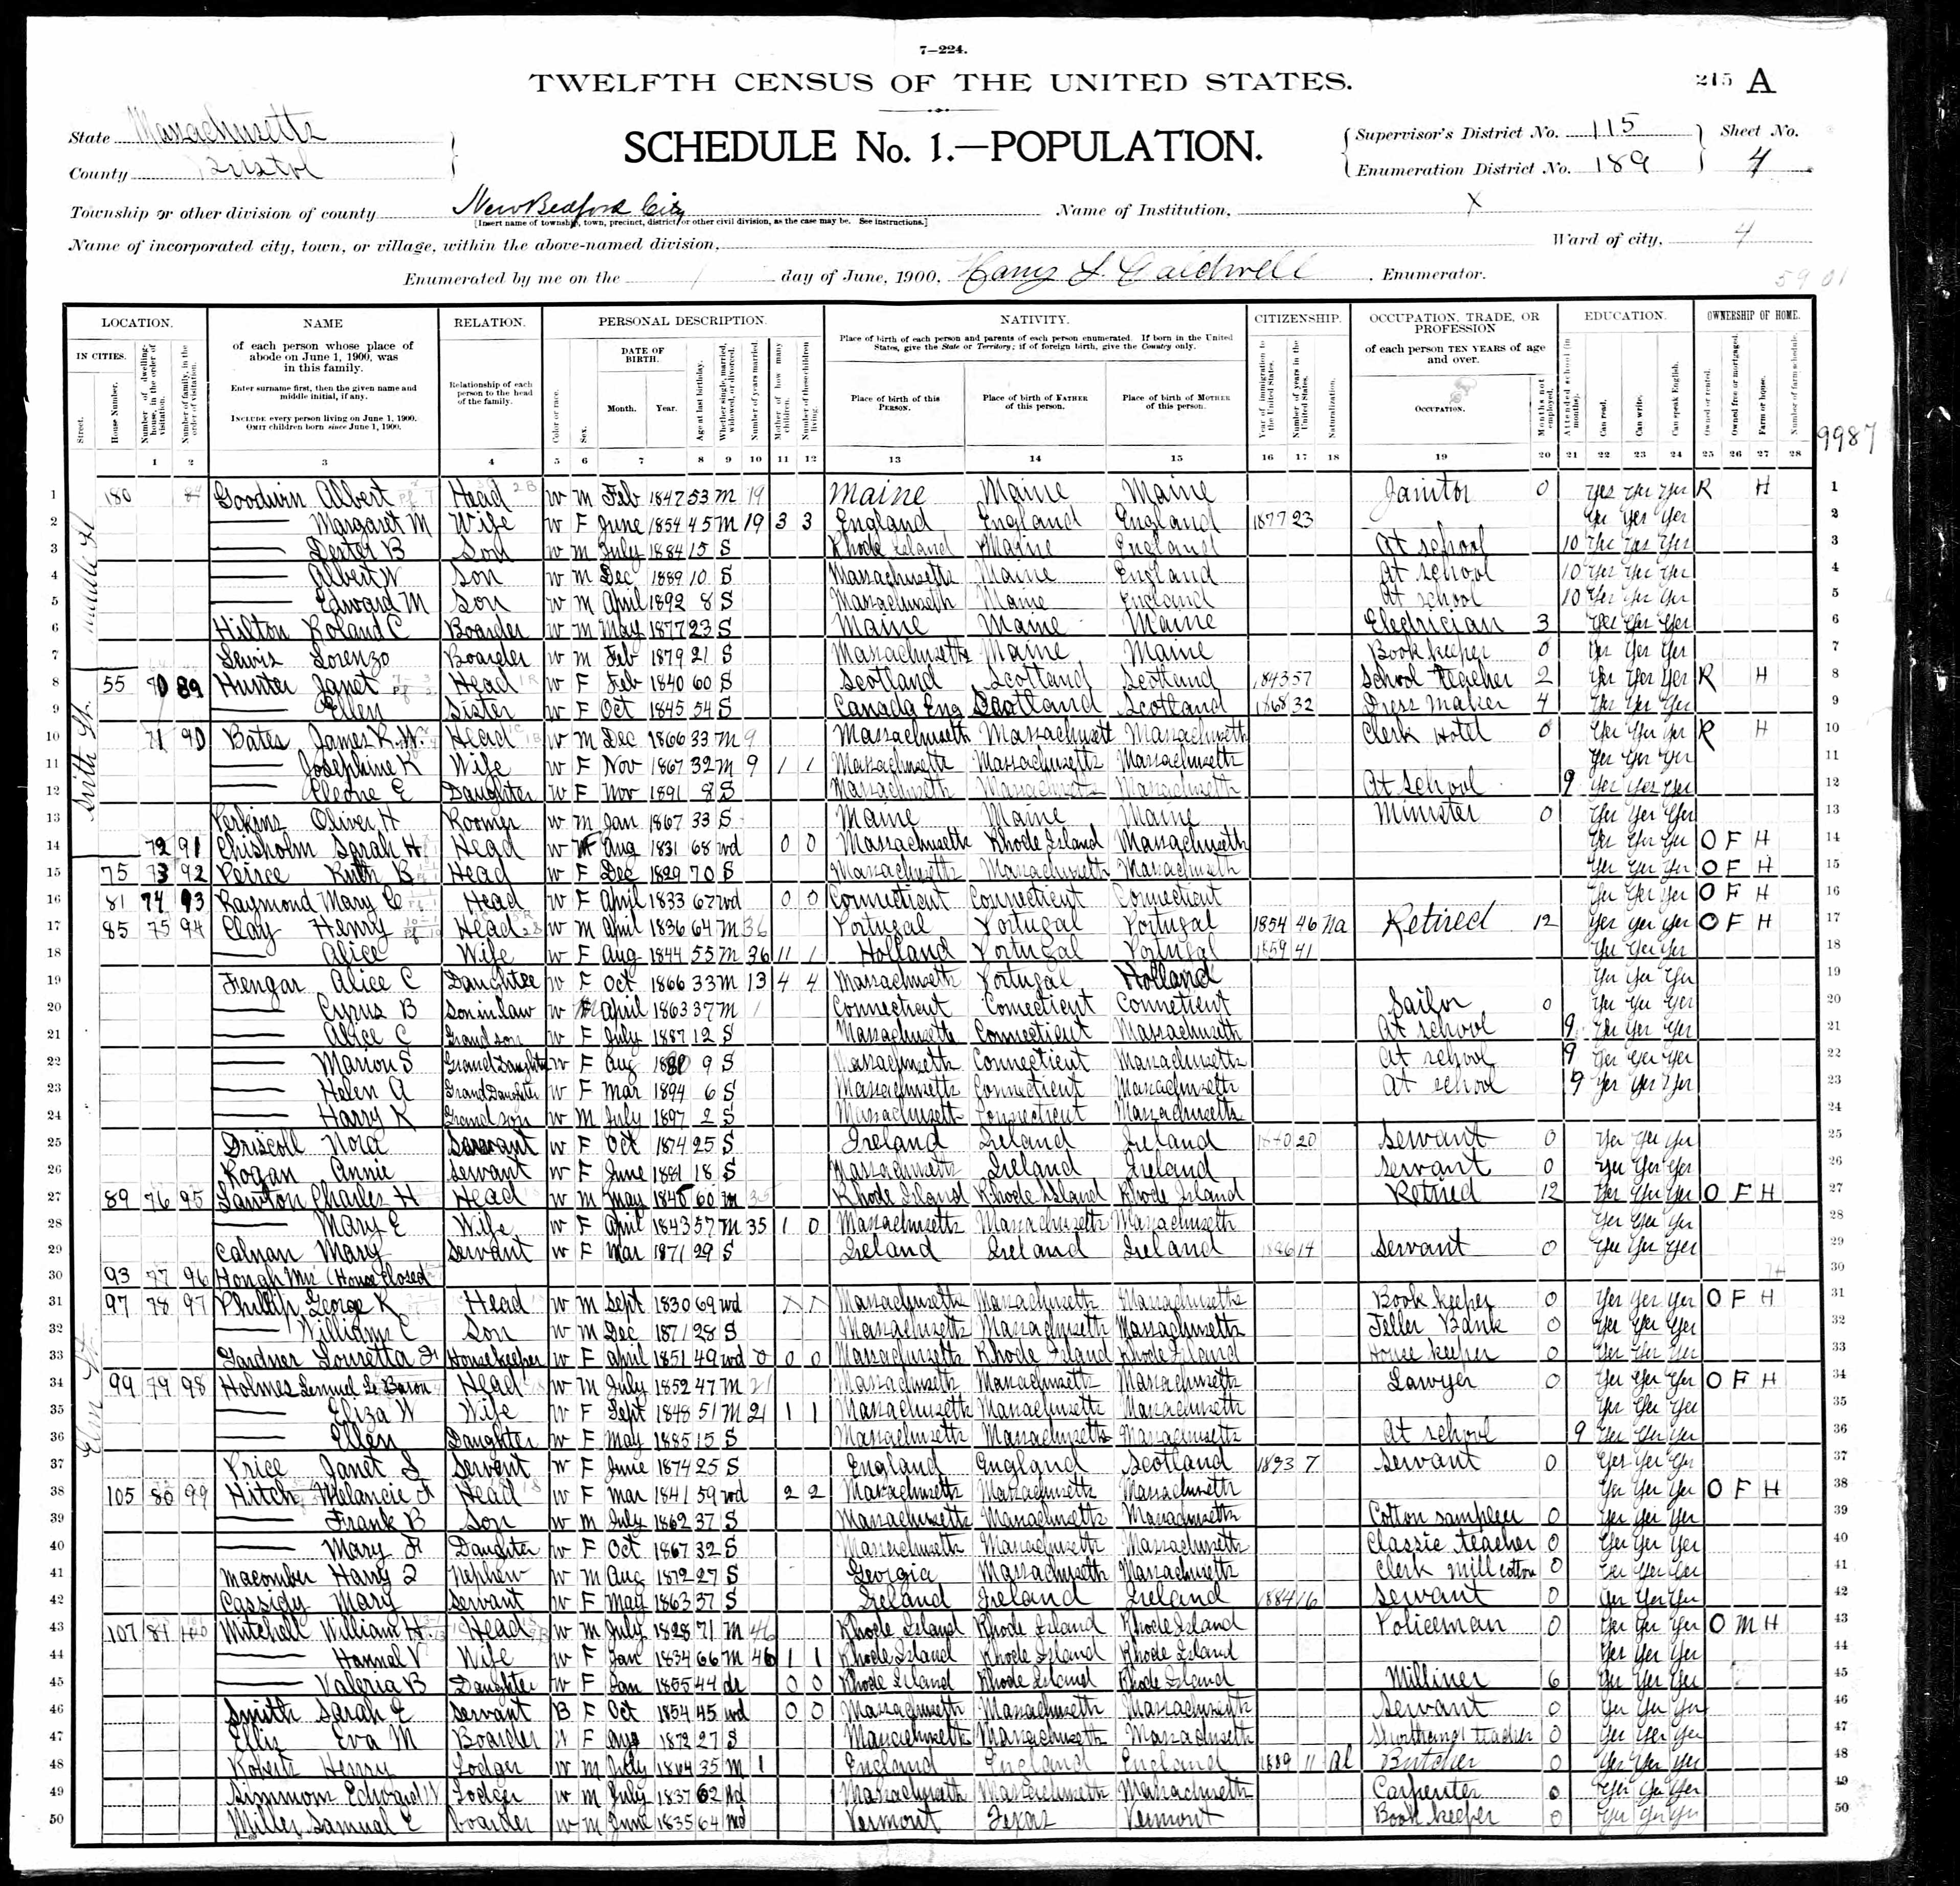 7—224.
TWELFTH CENSUS OF THE UNITED STATES.
215 A
State Massachusetts
County Bristol
SCHEDULE No. 1.—POPULATION.
Supervisor's District No. 115
Enumeration District No. 189
Sheet No. 4
Township or other division of county New Bedford City
[Insert name of township, town, precinct, district, or other civil division, as the case may be. See instructions.]
Name of Institution, X
Name of incorporated city, town, or village, within the above-named division,
Ward of city, 4
Enumerated by me on the 1 day of June, 1900, Harry L. Caldwell, Enumerator.
5901
LOCATION. NAME RELATION. PERSONAL DESCRIPTION. NATIVITY. CITIZENSHIP. OCCUPATION, TRADE, OR PROFESSION EDUCATION. OWNERSHIP OF HOME.
IN CITIES. Street. House Number. Number of dwelling-house, in the order of visitation. Number of family, in the order of visitation.
of each person whose place of abode on June 1, 1900, was in this family.
Enter surname first, then the given name and middle initial, if any.
INCLUDE every person living on June 1, 1900.
OMIT children born since June 1, 1900.
Relationship of each person to the head of the family.
Color or race. Sex. DATE OF BIRTH. Month. Year. Age at last birthday. Whether single, married, widowed, or divorced. Number of years married. Mother of how many children. Number of these children living.
Place of birth of each person and parents of each person enumerated. If born in the United States, give the State or Territory; if of foreign birth, give the Country only.
Place of birth of this PERSON. Place of birth of FATHER of this person. Place of birth of MOTHER of this person.
Year of immigration to the United States. Number of years in the United States. Naturalization.
of each person TEN YEARS of age and over.
OCCUPATION. Months not employed.
Attended school (in months). Can read. Can write. Can speak English.
Owned or rented. Owned free or mortgaged. Farm or house. Number of farm schedule.
9987
1 2 3 4 5 6 7 8 9 10 11 12 13 14 15 16 17 18 19 20 21 22 23 24 25 26 27 28
1 180 Goodwin Albert Head W M Feb 1847 53 M 19 Maine Maine Maine Janitor 0 Yes Yes Yes R H 1
2 — Margaret M Wife W F June 1854 45 M 19 3 3 England England England 1877 23 Yes Yes Yes 2
3 — Lester B Son W M July 1884 15 S Rhode Island Maine England At school 10 Yes Yes Yes 3
4 — Albert W Son W M Dec 1889 10 S Massachusetts Maine England At school 10 Yes Yes Yes 4
5 — Edward M Son W M April 1892 8 S Massachusetts Maine England At school 10 Yes Yes Yes 5
6 Hilton Roland C Boarder W M May 1877 23 S Maine Maine Maine Electrician 3 Yes Yes Yes 6
7 Lewis Lorenzo Boarder W M Feb 1879 21 S Massachusetts Maine Maine Book keeper 0 Yes Yes Yes 7
Sixth St.
8 55 70 89 Hunter Janet Head W F Feb 1840 60 S Scotland Scotland Scotland 1843 57 School teacher 2 Yes Yes Yes R H 8
9 — Ellen Sister W F Oct 1845 54 S Canada Eng Scotland Scotland 1868 32 Dress maker 4 Yes Yes Yes 9
10 71 90 Bates James R. W. Head W M Dec 1866 33 M 9 Massachusetts Massachusetts Massachusetts Clerk Hotel 0 Yes Yes Yes R H 10
11 — Josephine K Wife W F Nov 1867 32 M 9 1 1 Massachusetts Massachusetts Massachusetts Yes Yes Yes 11
12 — Cleone E Daughter W F Nov 1891 8 S Massachusetts Massachusetts Massachusetts At school 9 Yes Yes Yes 12
13 Perkins Oliver H Roomer W M Jan 1867 33 S Maine Maine Maine Minister 0 Yes Yes Yes 13
14 72 91 Chisholm Sarah H Head W F Aug 1831 68 Wd 0 0 Massachusetts Rhode Island Massachusetts Yes Yes Yes O F H 14
Elm St.
15 75 73 92 Peirce Ruth B Head W F Dec 1829 70 S Massachusetts Massachusetts Massachusetts Yes Yes Yes O F H 15
16 81 74 93 Raymond Mary C Head W F April 1833 67 Wd 0 0 Connecticut Connecticut Connecticut Yes Yes Yes O F H 16
17 85 75 94 Clay Henry Head W M April 1836 64 M 36 Portugal Portugal Portugal 1854 46 Na Retired 12 Yes Yes Yes O F H 17
18 — Alice Wife W F Aug 1844 55 M 36 1 1 Holland Portugal Portugal 1859 41 Yes Yes Yes 18
19 Fengar Alice C Daughter W F Oct 1866 33 M 13 4 4 Massachusetts Portugal Holland Yes Yes Yes 19
20 — Cyrus B Son in law W M April 1863 37 M Connecticut Connecticut Connecticut Sailor 0 Yes Yes Yes 20
21 — Alice C Grand son W F July 1887 12 S Massachusetts Connecticut Massachusetts At school 9 Yes Yes Yes 21
22 — Marion S Grand Daughter W F Aug 1890 9 S Massachusetts Connecticut Massachusetts At school 9 Yes Yes Yes 22
23 — Helen A Grand Daughter W F Mar 1894 6 S Massachusetts Connecticut Massachusetts At school 9 Yes Yes Yes 23
24 — Harry K Grand son W M July 1897 2 S Massachusetts Connecticut Massachusetts 24
25 Driscoll Nora Servant W F Oct 1874 25 S Ireland Ireland Ireland 20 Servant 0 Yes Yes Yes 25
26 Rogan Annie Servant W F June 1881 18 S Massachusetts Ireland Ireland Servant 0 Yes Yes Yes 26
27 89 76 95 Lawton Charles H Head W M May 60 M Rhode Island Rhode Island Rhode Island Retired 12 Yes Yes Yes O F H 27
28 — Mary E Wife W F April 1843 57 M 35 1 0 Massachusetts Massachusetts Massachusetts Yes Yes Yes 28
29 Calnan Mary Servant W F Mar 1871 29 S Ireland Ireland Ireland 14 Servant 0 Yes Yes Yes 29
30 93 77 96 Hough Mrs (House Closed 30
31 97 78 97 Phillips George K Head W M Sept 1830 69 Wd Massachusetts Massachusetts Massachusetts Book keeper 0 Yes Yes Yes O F H 31
32 — William C Son W M Dec 1871 28 S Massachusetts Massachusetts Massachusetts Teller Bank 0 Yes Yes Yes 32
33 Gardner Louretta H Housekeeper W F April 1851 49 Wd 0 0 0 Massachusetts Rhode Island Rhode Island House keeper 0 Yes Yes Yes 33
34 99 79 98 Holmes Lemuel Le Baron Head W M July 1852 47 M 21 Massachusetts Massachusetts Massachusetts Lawyer 0 Yes Yes Yes O F H 34
35 — Eliza W Wife W F Sept 1848 51 M 21 1 1 Massachusetts Massachusetts Massachusetts Yes Yes Yes 35
36 — Ellen Daughter W F May 1885 15 S Massachusetts Massachusetts Massachusetts At school 9 Yes Yes Yes 36
37 Price Janet S Servent W F June 1874 25 S England England Scotland 1893 7 Servant 0 Yes Yes Yes 37
38 105 80 99 Hitch Melancie Head W F Mar 1841 59 Wd 2 2 Massachusetts Massachusetts Massachusetts Yes Yes Yes O F H 38
39 — Frank B Son W M July 1862 37 S Massachusetts Massachusetts Massachusetts Cotton sampler 0 Yes Yes Yes 39
40 — Mary Daughter W F Oct 1867 32 S Massachusetts Massachusetts Massachusetts Classic teacher 0 Yes Yes Yes 40
41 Macomber Harry Nephew W M Aug 1872 27 S Georgia Massachusetts Massachusetts Clerk Mill cotton 0 Yes Yes Yes 41
42 Cassidy Mary Servant W F May 1863 37 S Ireland Ireland Ireland 1884 16 Servant 0 Yes Yes Yes 42
43 107 81 100 Mitchell William H Head W M July 1828 71 M 46 Rhode Island Rhode Island Rhode Island Policeman 0 Yes Yes Yes O M H 43
44 — Hannah V Wife W F Jan 1834 66 M 46 1 1 Rhode Island Rhode Island Rhode Island Yes Yes Yes 44
45 — Valeria B Daughter W F Jan 1855 44 dr 0 0 Rhode Island Rhode Island Rhode Island Milliner 6 Yes Yes Yes 45
46 Smith Sarah E Servant B F Oct 1854 45 Wd 0 0 Massachusetts Massachusetts Massachusetts Servant 0 Yes Yes Yes 46
47 Ellis Eva M Boarder W F Aug 1872 27 S Massachusetts Massachusetts Massachusetts Shorthand teacher 0 Yes Yes Yes 47
48 Roberts Henry Lodger W M July 1864 35 M 1 England England England 1889 11 Al Butcher 0 Yes Yes Yes 48
49 Simmons Edward W Lodger W M July 1837 62 Wd Massachusetts Massachusetts Massachusetts Carpenter 0 Yes Yes Yes 49
50 Miller Samuel E Boarder W M June 1835 64 Wd Vermont Texas Vermont Book keeper 0 Yes Yes Yes 50